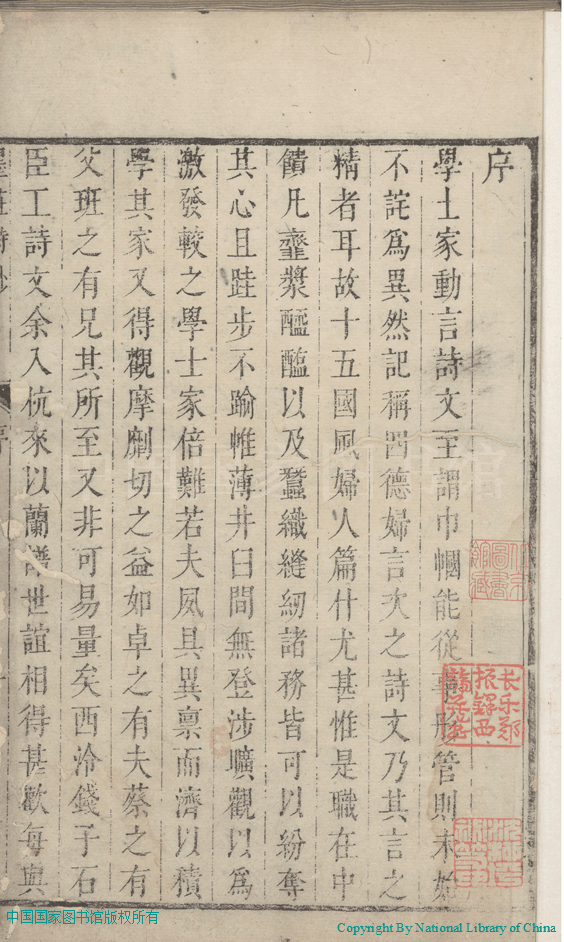 序
學士家動言詩文至謂巾幗能從事彤管則未始
不詫爲異然記稱四德婦言次之詩文乃其言之
精者耳故十五國風婦人篇什尤甚惟是職在中
饋凡虀漿醯醢以及蠶織縫紉諸務皆可以紛奪
其心且跬步不踰帷薄井臼間無登涉曠觀以爲
激發較之學士家倍難若夫夙具異稟而濟以積
學其家又得觀摩劘切之益如卓之有夫蔡之有
父班之有兄其所至又非可易量矣西泠錢子石
臣工詩文余入杭來以蘭譜世誼相得甚歡每與
长乐郑
振铎西
谛藏书
中国国家图书馆版权所有
Copyright By National Library of China